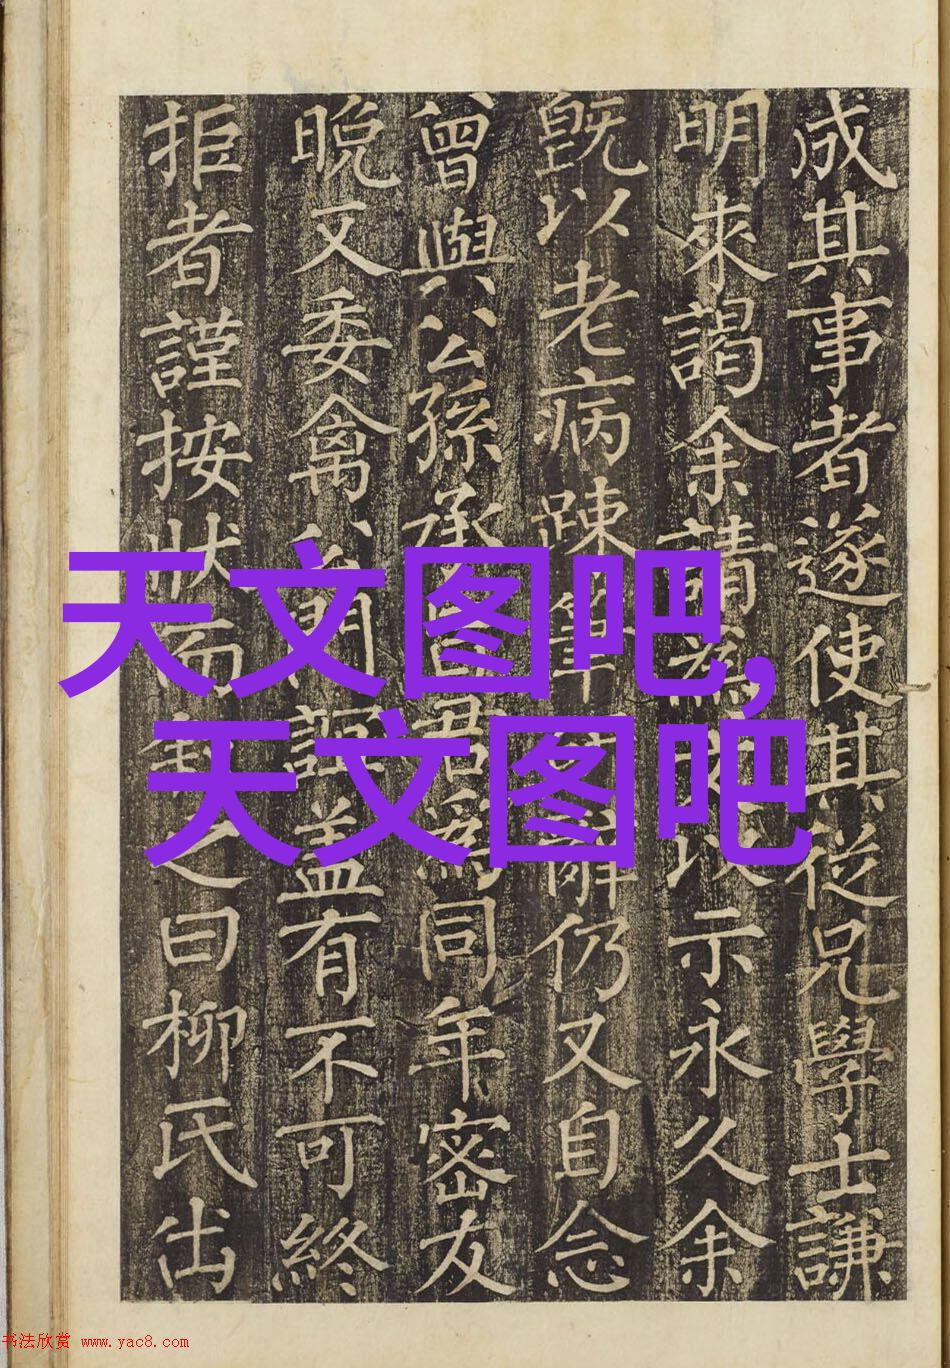 成其事者遂使其從兄學士謙
明來謁余請為以示永久余
既以老病踈筆辭仍又自念
曾與公孫承旨君為同年密友
晚又委禽門誼蓋有不可終
拒者謹按狀而之曰柳氏出
天文图吧,
天文图吧
书法欣赏 www.yac8.com